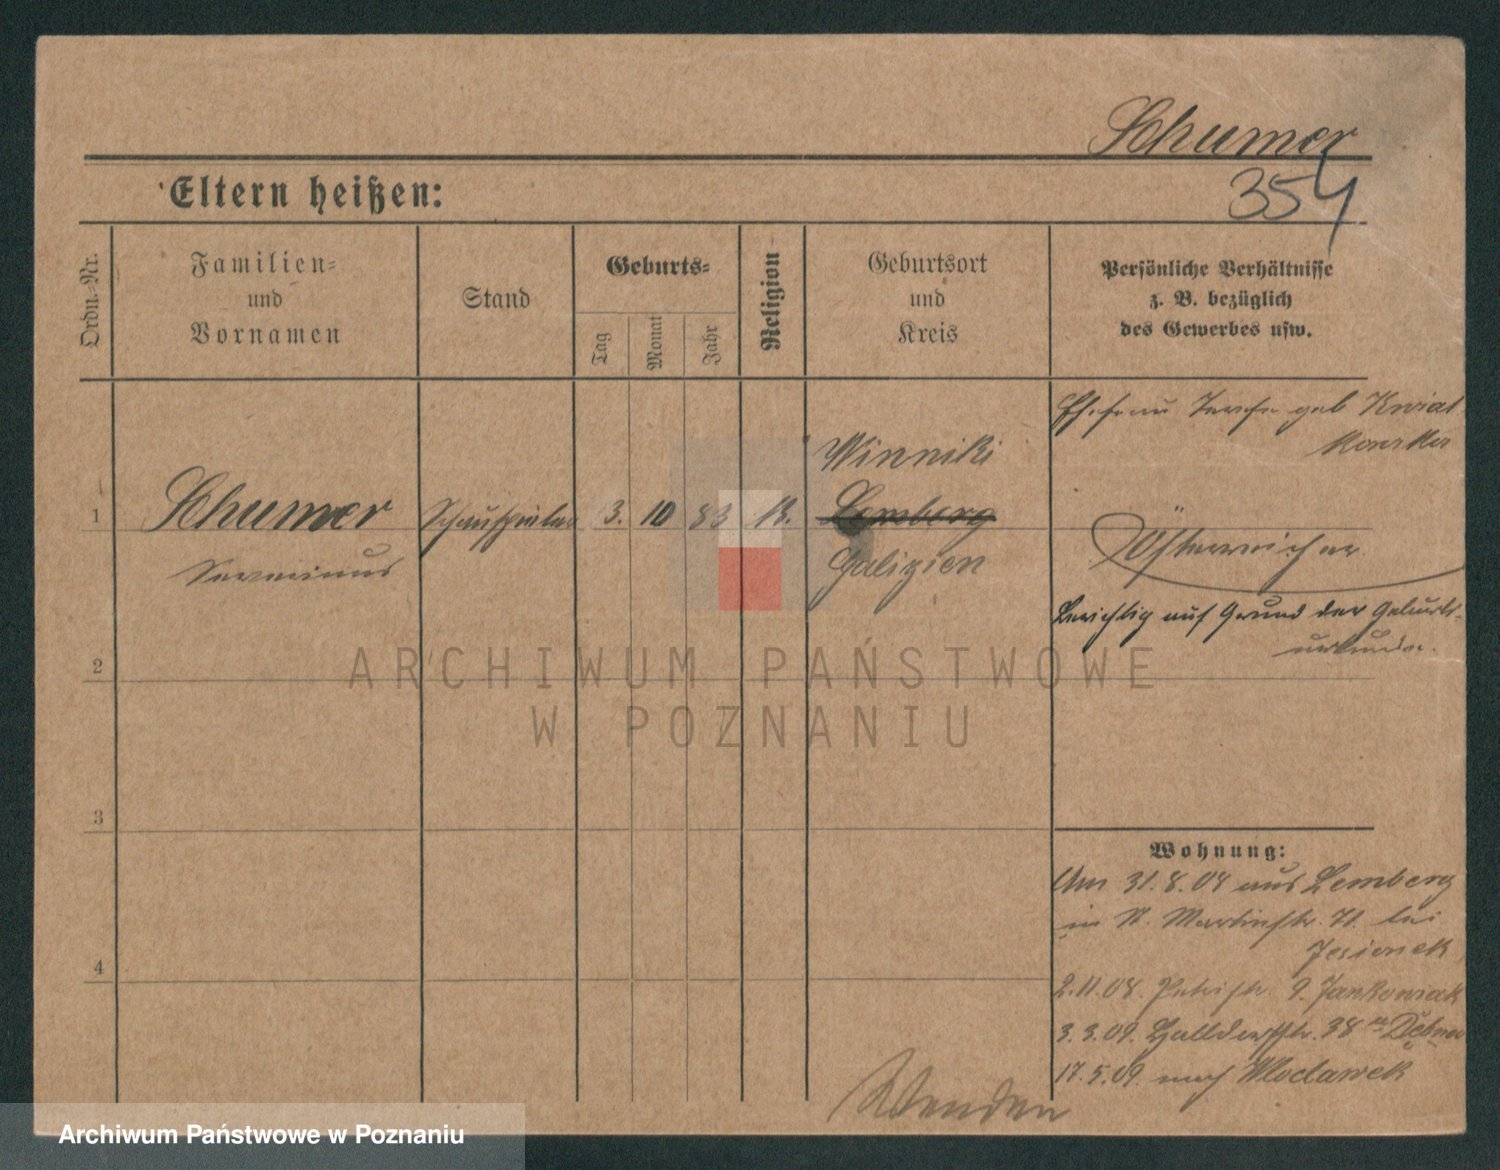 Schumer
354
Eltern heißen:
Ordn.-Nr.
Familien-
und
Vornamen
Stand
Geburts-
Tag
Monat
Jahr
Religion
Geburtsort
und
Kreis
Persönliche Verhältnisse
z. B. bezüglich
des Gewerbes usw.
Ehefrau geb Kwiat
kowska
1
Schumer
Severinus
Schauspieler
3.
10
83
K.
Winniki
Lemberg
Galizien
Österreicher
Berichtig auf Grund der Geburts-
urkunde.
2
3
4
ARCHIWUM PAŃSTWOWE
W POZNANIU
Wohnung:
Am 31.8.08 aus Lemberg
in St. Martinstr. 71 bei
Jesionek
2.11.08. Petristr. 9. Jankowiak
3.3.09. 38
17.5.09 nach Wloclawek
Wenden
Archiwum Państwowe w Poznaniu